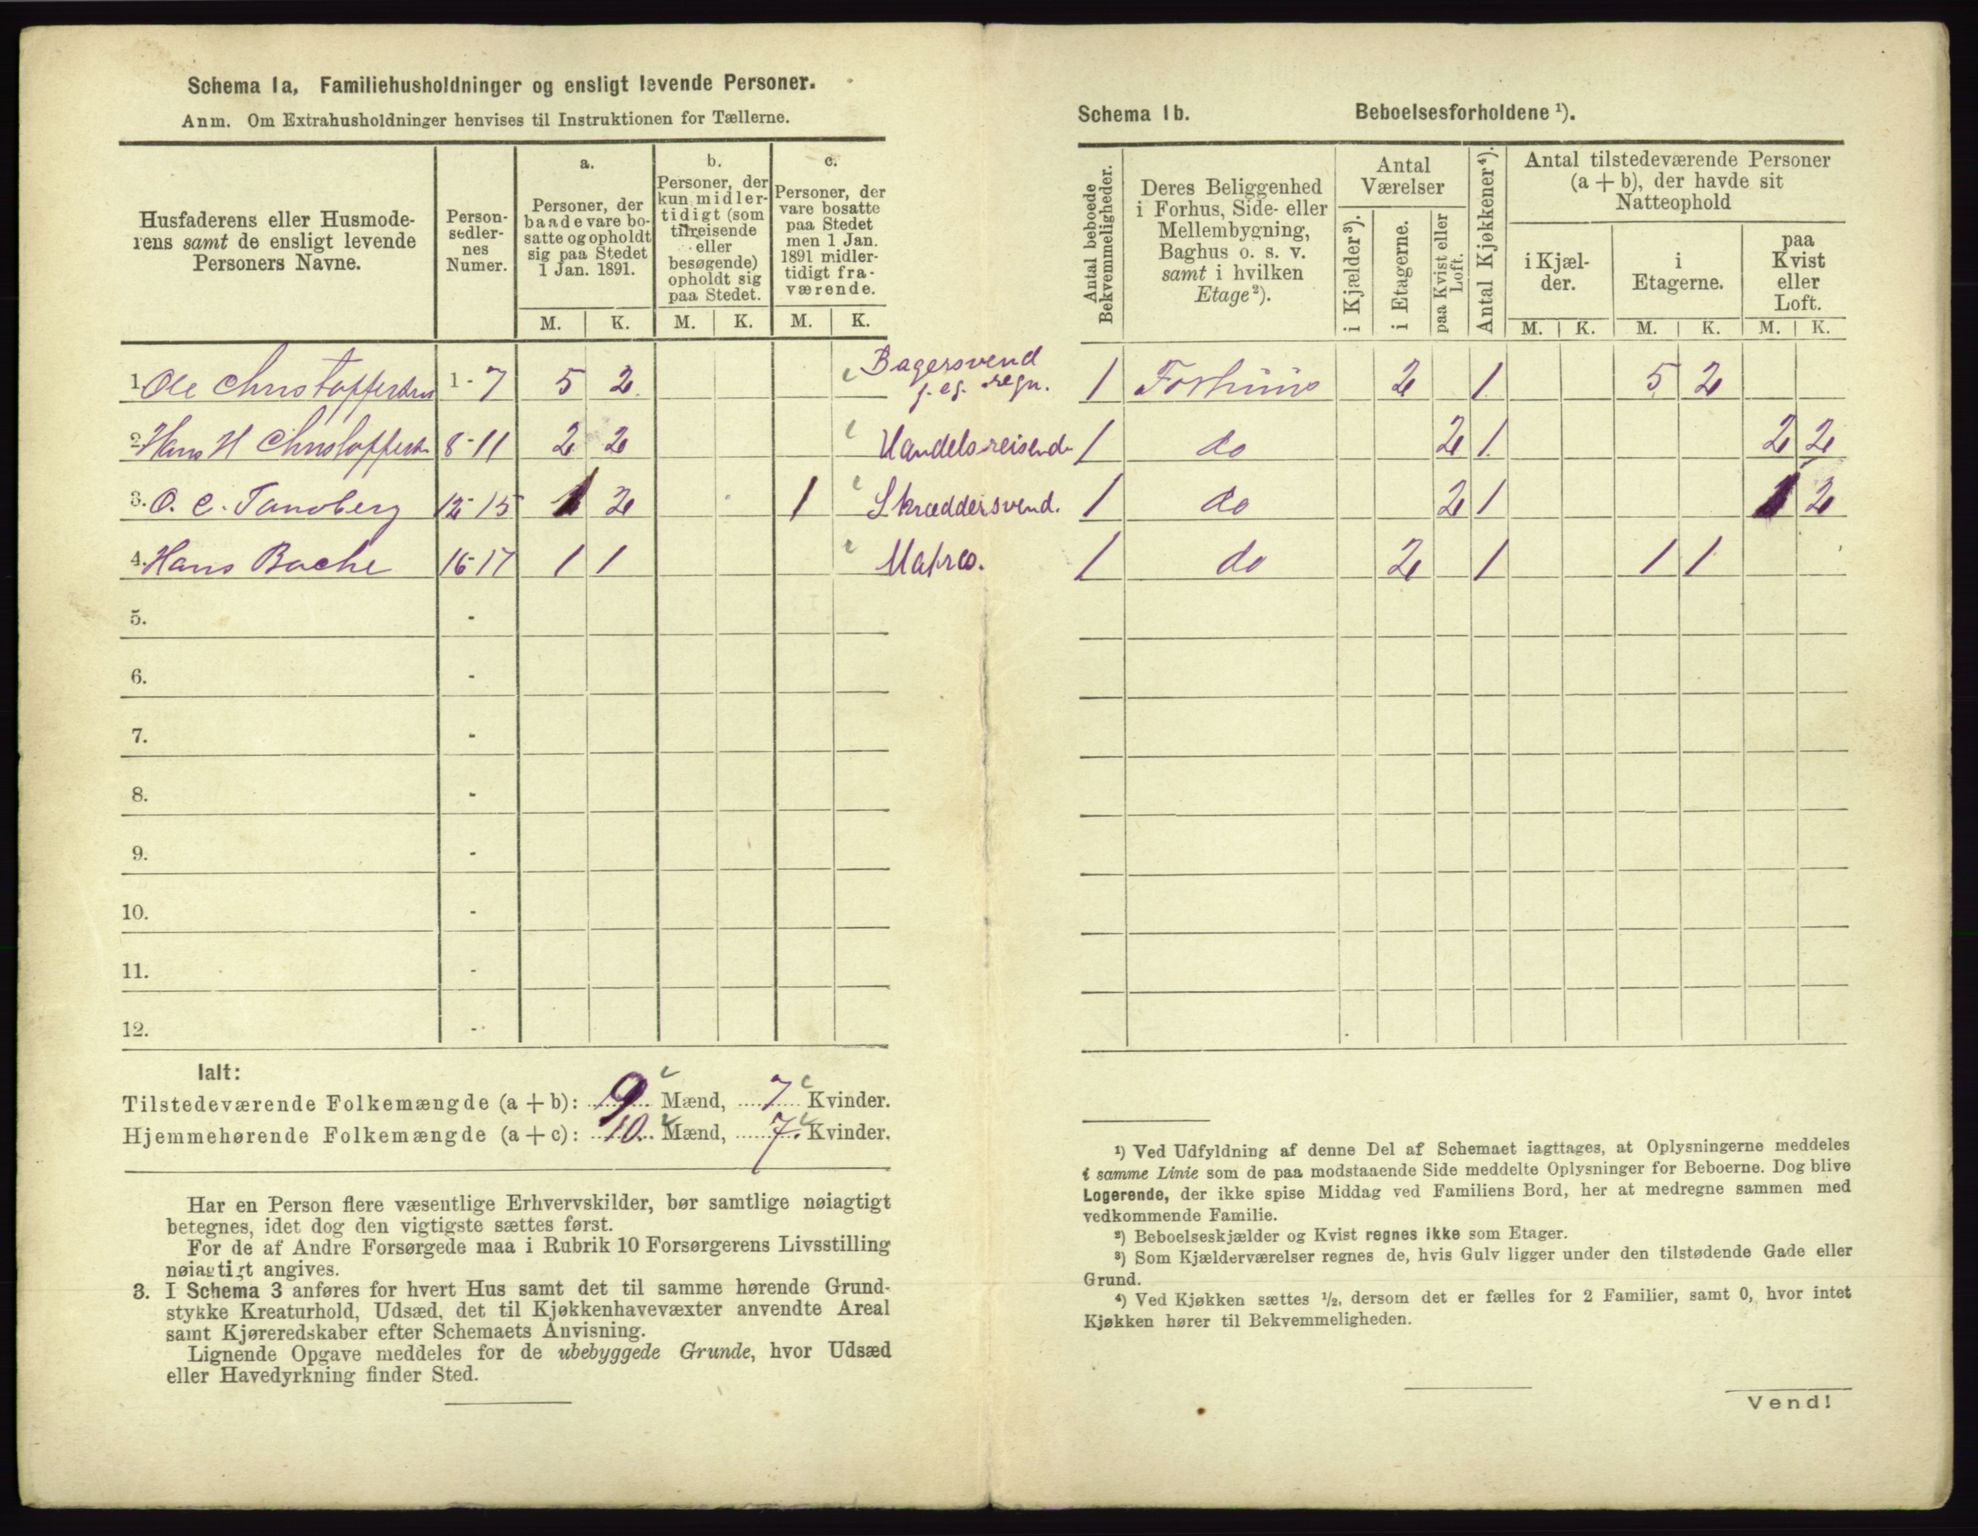 Schema 1a, Familiehusholdninger og ensligt levende Personer.
Anm. Om Extrahusholdninger henvises til Instruktionen for Tællerne.
Husfaderens eller Husmode-
rens samt de ensligt levende
Personers Navne.
Person-
sedler-
nes
Numer.
a.
Personer, der
baade vare bo-
satte og opholdt
sig paa Stedet
1 Jan. 1891.
b.
Personer, der
kun midler-
tidigt (som
tilreisende
eller
besøgende)
opholdt sig
paa Stedet.
c.
Personer, der
vare bosatte
paa Stedet
men 1 Jan.
1891 midler-
tidigt fra-
værende.
M. K. M. K. M. K.
1. Ole Christoffersen 1 - 7 5 2 Bagersvend
f. eg. regn.
2. Hans H Christoffersen 8 - 11 2 2 Handelsreisende
3. O. C. Tandberg 12 - 15 1 2 1 Skræddersvend.
4. Hans Bache 16 - 17 1 1 Matros.
5. -
6. -
7. -
8. -
9. -
10. -
11. -
12. -
Ialt:
Tilstedeværende Folkemængde (a + b): 9 Mænd, 7 Kvinder.
Hjemmehørende Folkemængde (a + c): 10 Mænd, 7 Kvinder.
Har en Person flere væsentlige Erhvervskilder, bør samtlige nøiagtigt
betegnes, idet dog den vigtigste sættes først.
For de af Andre Forsørgede maa i Rubrik 10 Forsørgerens Livsstilling
nøiagtigt angives.
3. I Schema 3 anføres for hvert Hus samt det til samme hørende Grund-
stykke Kreaturhold, Udsæd, det til Kjøkkenhavevæxter anvendte Areal
samt Kjøreredskaber efter Schemaets Anvisning.
Lignende Opgave meddeles for de ubebyggede Grunde, hvor Udsæd
eller Havedyrkning finder Sted.
Schema 1b. Beboelsesforholdene ¹).
Antal beboede
Bekvemmeligheder.
Deres Beliggenhed
i Forhus, Side- eller
Mellembygning,
Baghus o. s. v.
samt i hvilken
Etage²).
Antal
Værelser
i Kjælder³).
i Etagerne.
paa Kvist eller
Loft.
Antal Kjøkkener⁴).
Antal tilstedeværende Personer
(a + b), der havde sit
Natteophold
i Kjæl-
der.
i
Etagerne.
paa
Kvist
eller
Loft.
M. K. M. K. M. K.
1 Forhuus 2 1 5 2
1 do 2 1 2 2
1 do 2 1 1 2
1 do 2 1 1 1
¹) Ved Udfyldning af denne Del af Schemaet iagttages, at Oplysningerne meddeles
i samme Linie som de paa modstaaende Side meddelte Oplysninger for Beboerne. Dog blive
Logerende, der ikke spise Middag ved Familiens Bord, her at medregne sammen med
vedkommende Familie.
²) Beboelseskjælder og Kvist regnes ikke som Etager.
³) Som Kjælderværelser regnes de, hvis Gulv ligger under den tilstødende Gade eller
Grund.
⁴) Ved Kjøkken sættes ½, dersom det er fælles for 2 Familier, samt 0, hvor intet
Kjøkken hører til Bekvemmeligheden.
Vend!